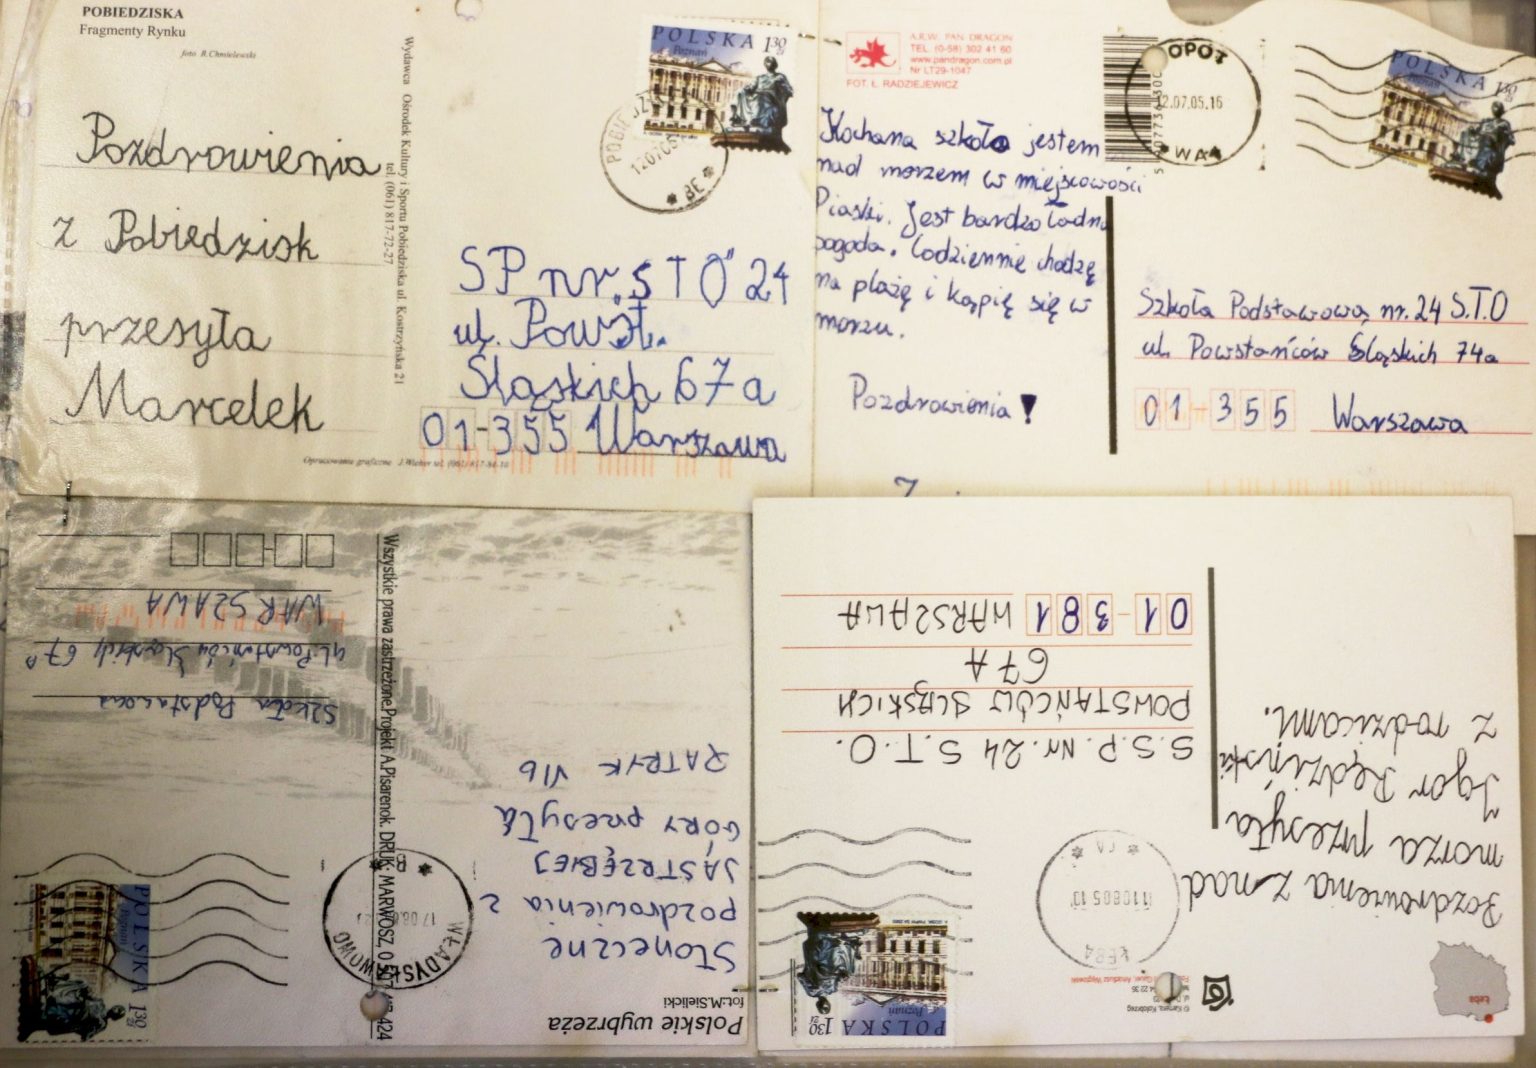 POBIEDZISKA
Fragmenty Rynku
foto R.Chmielewski
Pozdrowienia
z Pobiedzisk
przesyła
Marcelek
Wydawca Ośrodek Kultury i Sportu Pobiedziska ul. Kostrzyńska 21
tel. (061) 817-72-27
Opracowanie graficzne J.Wieber tel. (061) 817-84-10
POLSKA 130 zł
Poznań
SP nr "STO" 24
ul. Powst.
Śląskich 67a
01-355 Warszawa
A.R.W. PAN DRAGON
TEL. (0-58) 302 41 60
www.pandragon.com.pl
Nr LT29-1047
FOT. Ł. RADZIEJEWICZ
Kochana szkoło jestem
nad morzem w miejscowości
Piaski. Jest bardzo ładna
pogoda. Codziennie chodzę
na plażę i kąpię się w
morzu.
Pozdrowienia!
SOPOT
12.07.05.16
POLSKA 130
Poznań
Szkoła Podstawowa nr. 24 S.T.O
ul. Powstańców Śląskich 74a
01-355 Warszawa
Polskie wybrzeża
fot.M.Sielicki
Słoneczne
pozdrowienia z
JASTRZĘBIEJ
GÓRY przesyła
PATRYK VIb
Wszystkie prawa zastrzeżone.Projekt A.Pisarenok. DRUK: MARWOSZ,
POLSKA 130 zł
Poznań
WŁADYSŁAWOWO
Szkoła Podstawowa
ul. Powstańców Śląskich 67A
WARSZAWA
Łeba
Pozdrowienia znad
morza przesyła
Igor Rędziński
z rodzicami.
ŁEBA
110805.10
POLSKA 130 zł
Poznań
S.S.P. Nr. 24 S.T.O.
POWSTAŃCÓW ŚLĄSKICH
67A
01-381 WARSZAWA